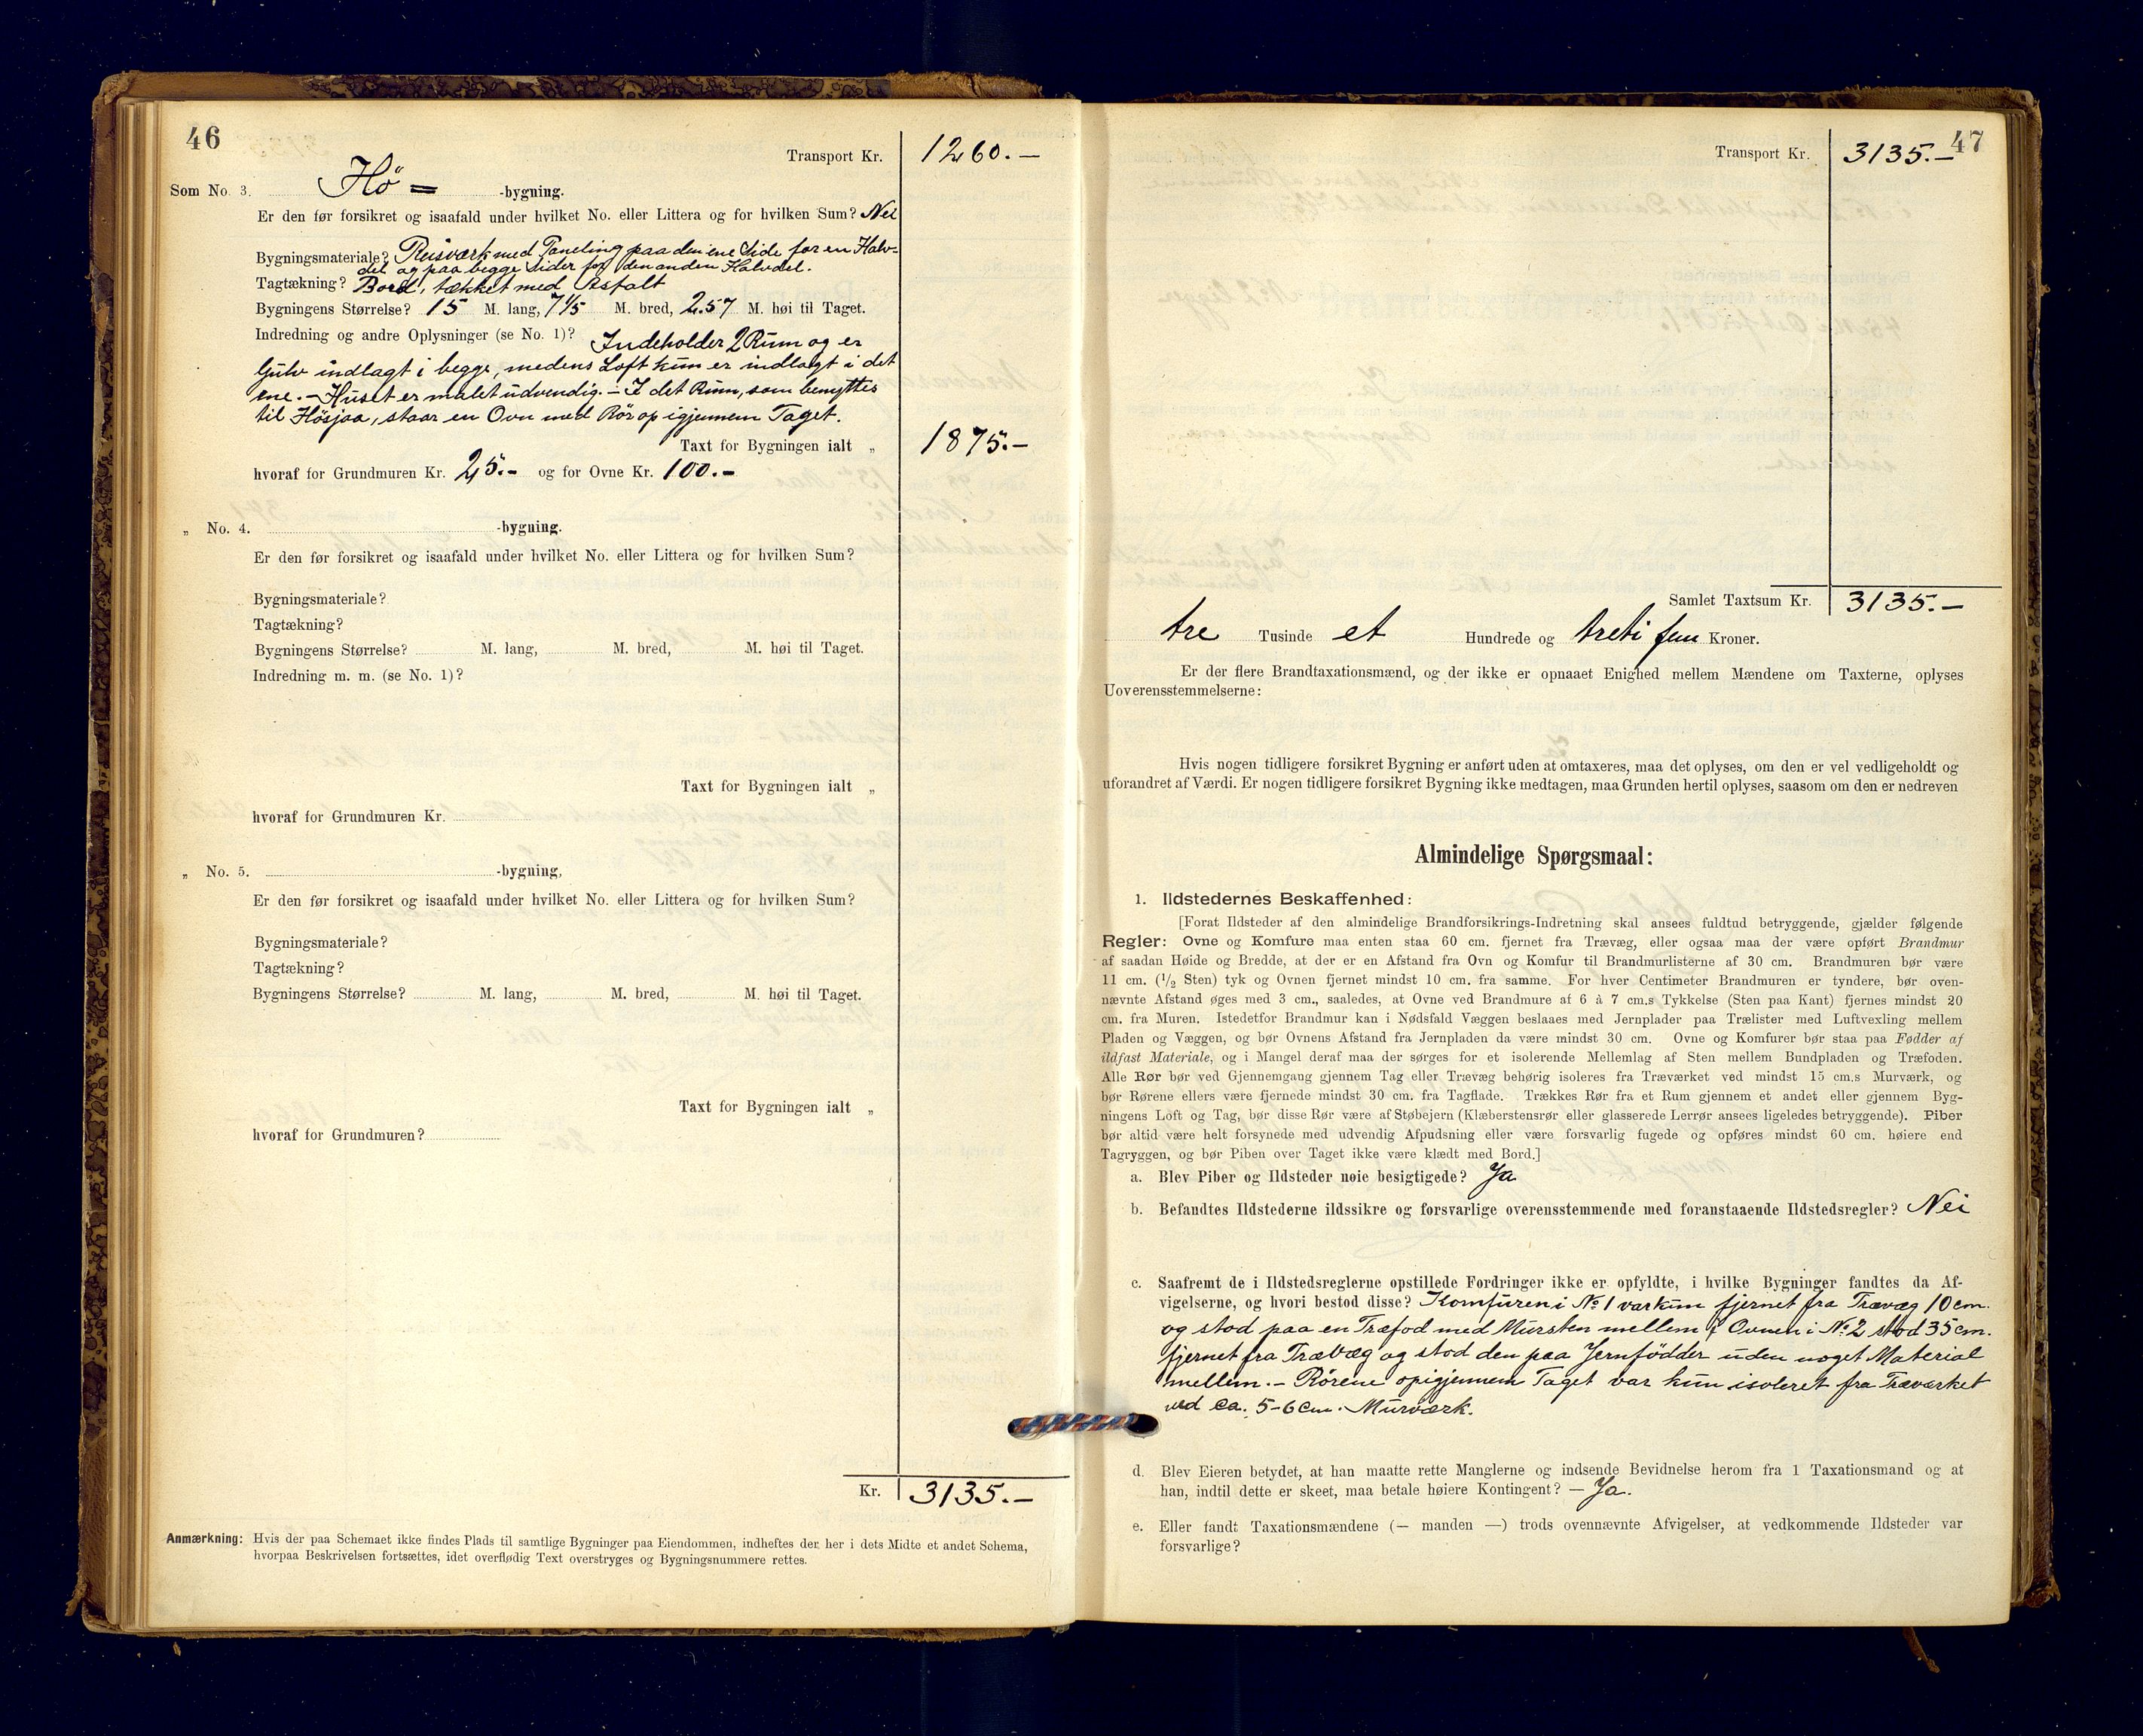 46
Transport Kr. 1260.—
Som No. 3. Hö= -bygning.
Er den før forsikret og isaafald under hvilket No. eller Littera og for hvilken Sum? Nei
Bygningsmateriale? Reisværk med Paneling paa den ene Side for en Halv-
del og paa begge Sider for den anden Halvdel.
Tagtækning? Bord, tækket med Asfalt
Bygningens Størrelse? 15 M. lang, 7,15 M. bred, 2.57 M. høi til Taget.
Indredning og andre Oplysninger (se No. 1)? Indeholder 2 Rum og er
Gulv indlagt i begge, medens Loft kun er indlagt i det
ene. — Huset er malet udvendig. — I det Rum, som benyttes
til Høsjaa, staar en Ovn med Rör op igjennem Taget.
Taxt for Bygningen ialt „ 1875.—
hvoraf for Grundmuren Kr. 25.— og for Ovne Kr. 100.—
„ No. 4. -bygning.
Er den før forsikret og isaafald under hvilket No. eller Littera og for hvilken Sum?
Bygningsmateriale?
Tagtækning?
Bygningens Størrelse? M. lang, M. bred, M. høi til Taget.
Indredning m. m. (se No. 1)?
Taxt for Bygningen ialt „
hvoraf for Grundmuren Kr.
„ No. 5. -bygning,
Er den før forsikret og isaafald under hvilket No. eller Littera og for hvilken Sum?
Bygningsmateriale?
Tagtækning?
Bygningens Størrelse? M. lang, M. bred, M. høi til Taget.
Taxt for Bygningen ialt „
hvoraf for Grundmuren?
Kr. 3135.—
Anmærkning: Hvis der paa Schemaet ikke findes Plads til samtlige Bygninger paa Eiendommen, indheftes der her i dets Midte et andet Schema,
hvorpaa Beskrivelsen fortsættes, idet overflødig Text overstryges og Bygningsnummere rettes.
47
Transport Kr. 3135.—
Samlet Taxtsum Kr. 3135.—
tre Tusinde et Hundrede og treti fem Kroner.
Er der flere Brandtaxationsmænd, og der ikke er opnaaet Enighed mellem Mændene om Taxterne, oplyses
Uoverensstemmelserne:
Hvis nogen tidligere forsikret Bygning er anført uden at omtaxeres, maa det oplyses, om den er vel vedligeholdt og
uforandret af Værdi. Er nogen tidligere forsikret Bygning ikke medtagen, maa Grunden hertil oplyses, saasom om den er nedreven
Almindelige Spørgsmaal:
1. Ildstedernes Beskaffenhed:
[Forat Ildsteder af den almindelige Brandforsikrings-Indretning skal ansees fuldtud betryggende, gjælder følgende
Regler: Ovne og Komfure maa enten staa 60 cm. fjernet fra Trævæg, eller ogsaa maa der være opført Brandmur
af saadan Høide og Bredde, at der er en Afstand fra Ovn og Komfur til Brandmurlisterne af 30 cm. Brandmuren bør være
11 cm. (1/2 Sten) tyk og Ovnen fjernet mindst 10 cm. fra samme. For hver Centimeter Brandmuren er tyndere, bør oven-
nævnte Afstand øges med 3 cm., saaledes, at Ovne ved Brandmure af 6 à 7 cm.s Tykkelse (Sten paa Kant) fjernes mindst 20
cm. fra Muren. Istedetfor Brandmur kan i Nødsfald Væggen beslaaes med Jernplader paa Trælister med Luftvexling mellem
Pladen og Væggen, og bør Ovnens Afstand fra Jernpladen da være mindst 30 cm. Ovne og Komfurer bør staa paa Fødder af
ildfast Materiale, og i Mangel deraf maa der sørges for et isolerende Mellemlag af Sten mellem Bundpladen og Træfoden.
Alle Rør bør ved Gjennemgang gjennem Tag eller Trævæg behørig isoleres fra Træværket ved mindst 15 cm.s Murværk, og
bør Rørene ellers være fjernede mindst 30 cm. fra Tagflade. Trækkes Rør fra et Rum gjennem et andet eller gjennem Byg-
ningens Loft og Tag, bør disse Rør være af Støbejern (Klæberstensrør eller glasserede Lerrør ansees ligeledes betryggende). Piber
bør altid være helt forsynede med udvendig Afpudsning eller være forsvarlig fugede og opføres mindst 60 cm. høiere end
Tagryggen, og bør Piben over Taget ikke være klædt med Bord.]
a. Blev Piber og Ildsteder nøie besigtigede? Ja
b. Befandtes Ildstederne ildssikre og forsvarlige overensstemmende med foranstaaende Ildstedsregler? Nei
c. Saafremt de i Ildstedsreglerne opstillede Fordringer ikke er opfyldte, i hvilke Bygninger fandtes da Af-
vigelserne, og hvori bestod disse? Komfuren i No 1 var kun fjernet fra Trævæg 10 cm.
og stod paa en Træfod med Mursten mellem; Ovnen i No 2 stod 35 cm.
fjernet fra Trævæg og stod den paa Jernfödder uden noget Material
mellem. — Rörene op igjennem Taget var kun isoleret fra Træværket
ved ca. 5-6 cm. Murværk.
d. Blev Eieren betydet, at han maatte rette Manglerne og indsende Bevidnelse herom fra 1 Taxationsmand og at
han, indtil dette er skeet, maa betale høiere Kontingent? — Ja.
e. Eller fandt Taxationsmændene (— manden —) trods ovennævnte Afvigelser, at vedkommende Ildsteder var
forsvarlige?